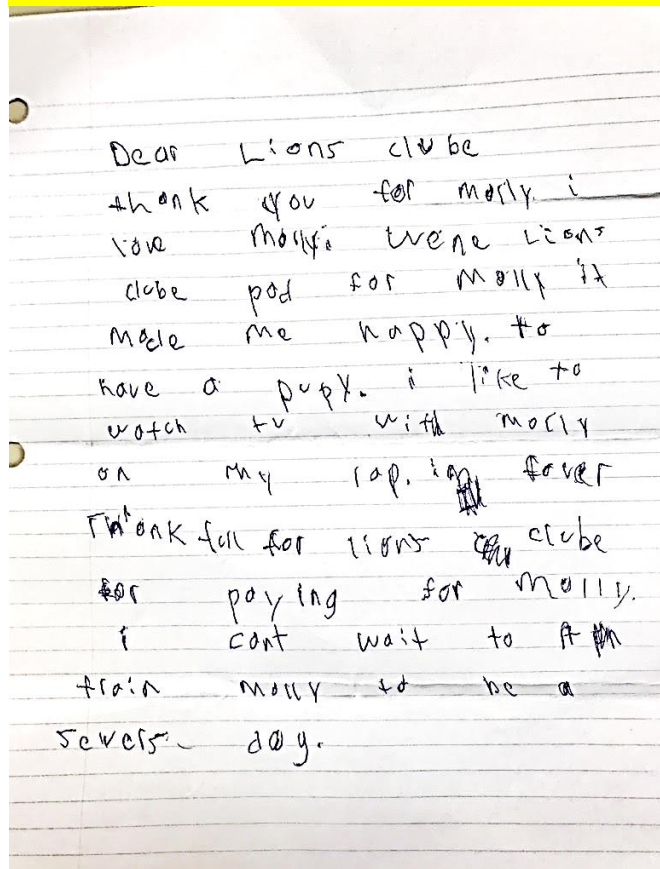 Dear Lions clube
thank you for molly. i
love molly. wene Lions
clube pad for molly it
made me happy. to
have a pupy. i like to
watch tv with molly
on my lap. im fover
Thankfull for lions clube
for paying for molly.
i cant wait to
train molly to be a
severs dog.